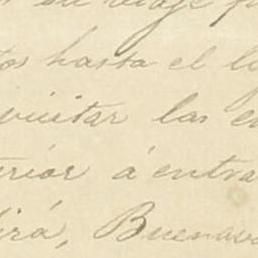 su viaje p
tos hasta el lo
visitar las e
terior á entra
dirá, Buenav